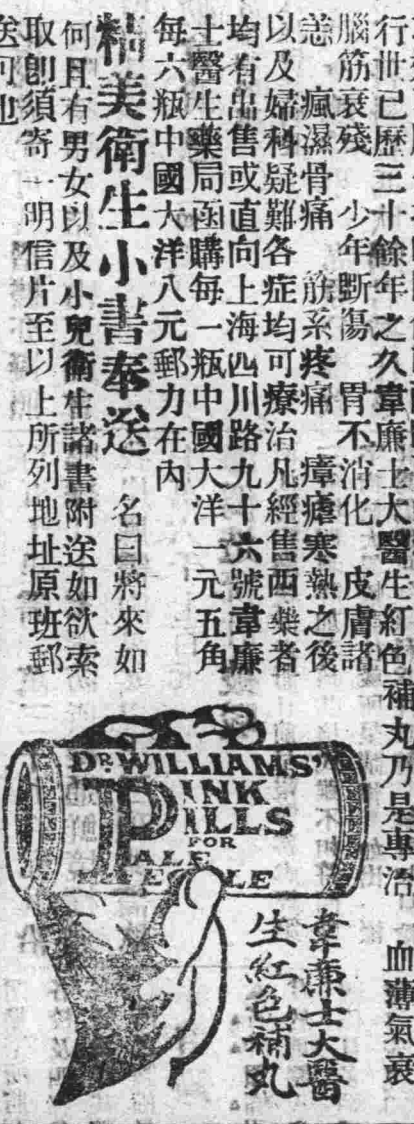 行世已歷三十餘年之久韋廉士大醫生紅色補丸乃是專治 血薄氣衰
腦筋衰殘 少年斲傷 胃不消化 皮膚諸
恙 瘋濕骨痛 筋系疼痛 瘴瘧寒熱之後
以及婦科疑難各症均可療治凡經售西藥者
均有出售或直向上海四川路九十六號韋廉
士醫生藥局函購每一瓶中國大洋一元五角
每六瓶中國大洋八元郵力在內
精美衛生小書奉送 名曰將來如
何且有男女以及小兒衛生諸書附送如欲索
取卽須寄一明信片至以上所列地址原班郵
送可也
DR. WILLIAMS'
PINK
PILLS
FOR
PALE
PEOPLE
韋廉士大醫
生紅色補丸